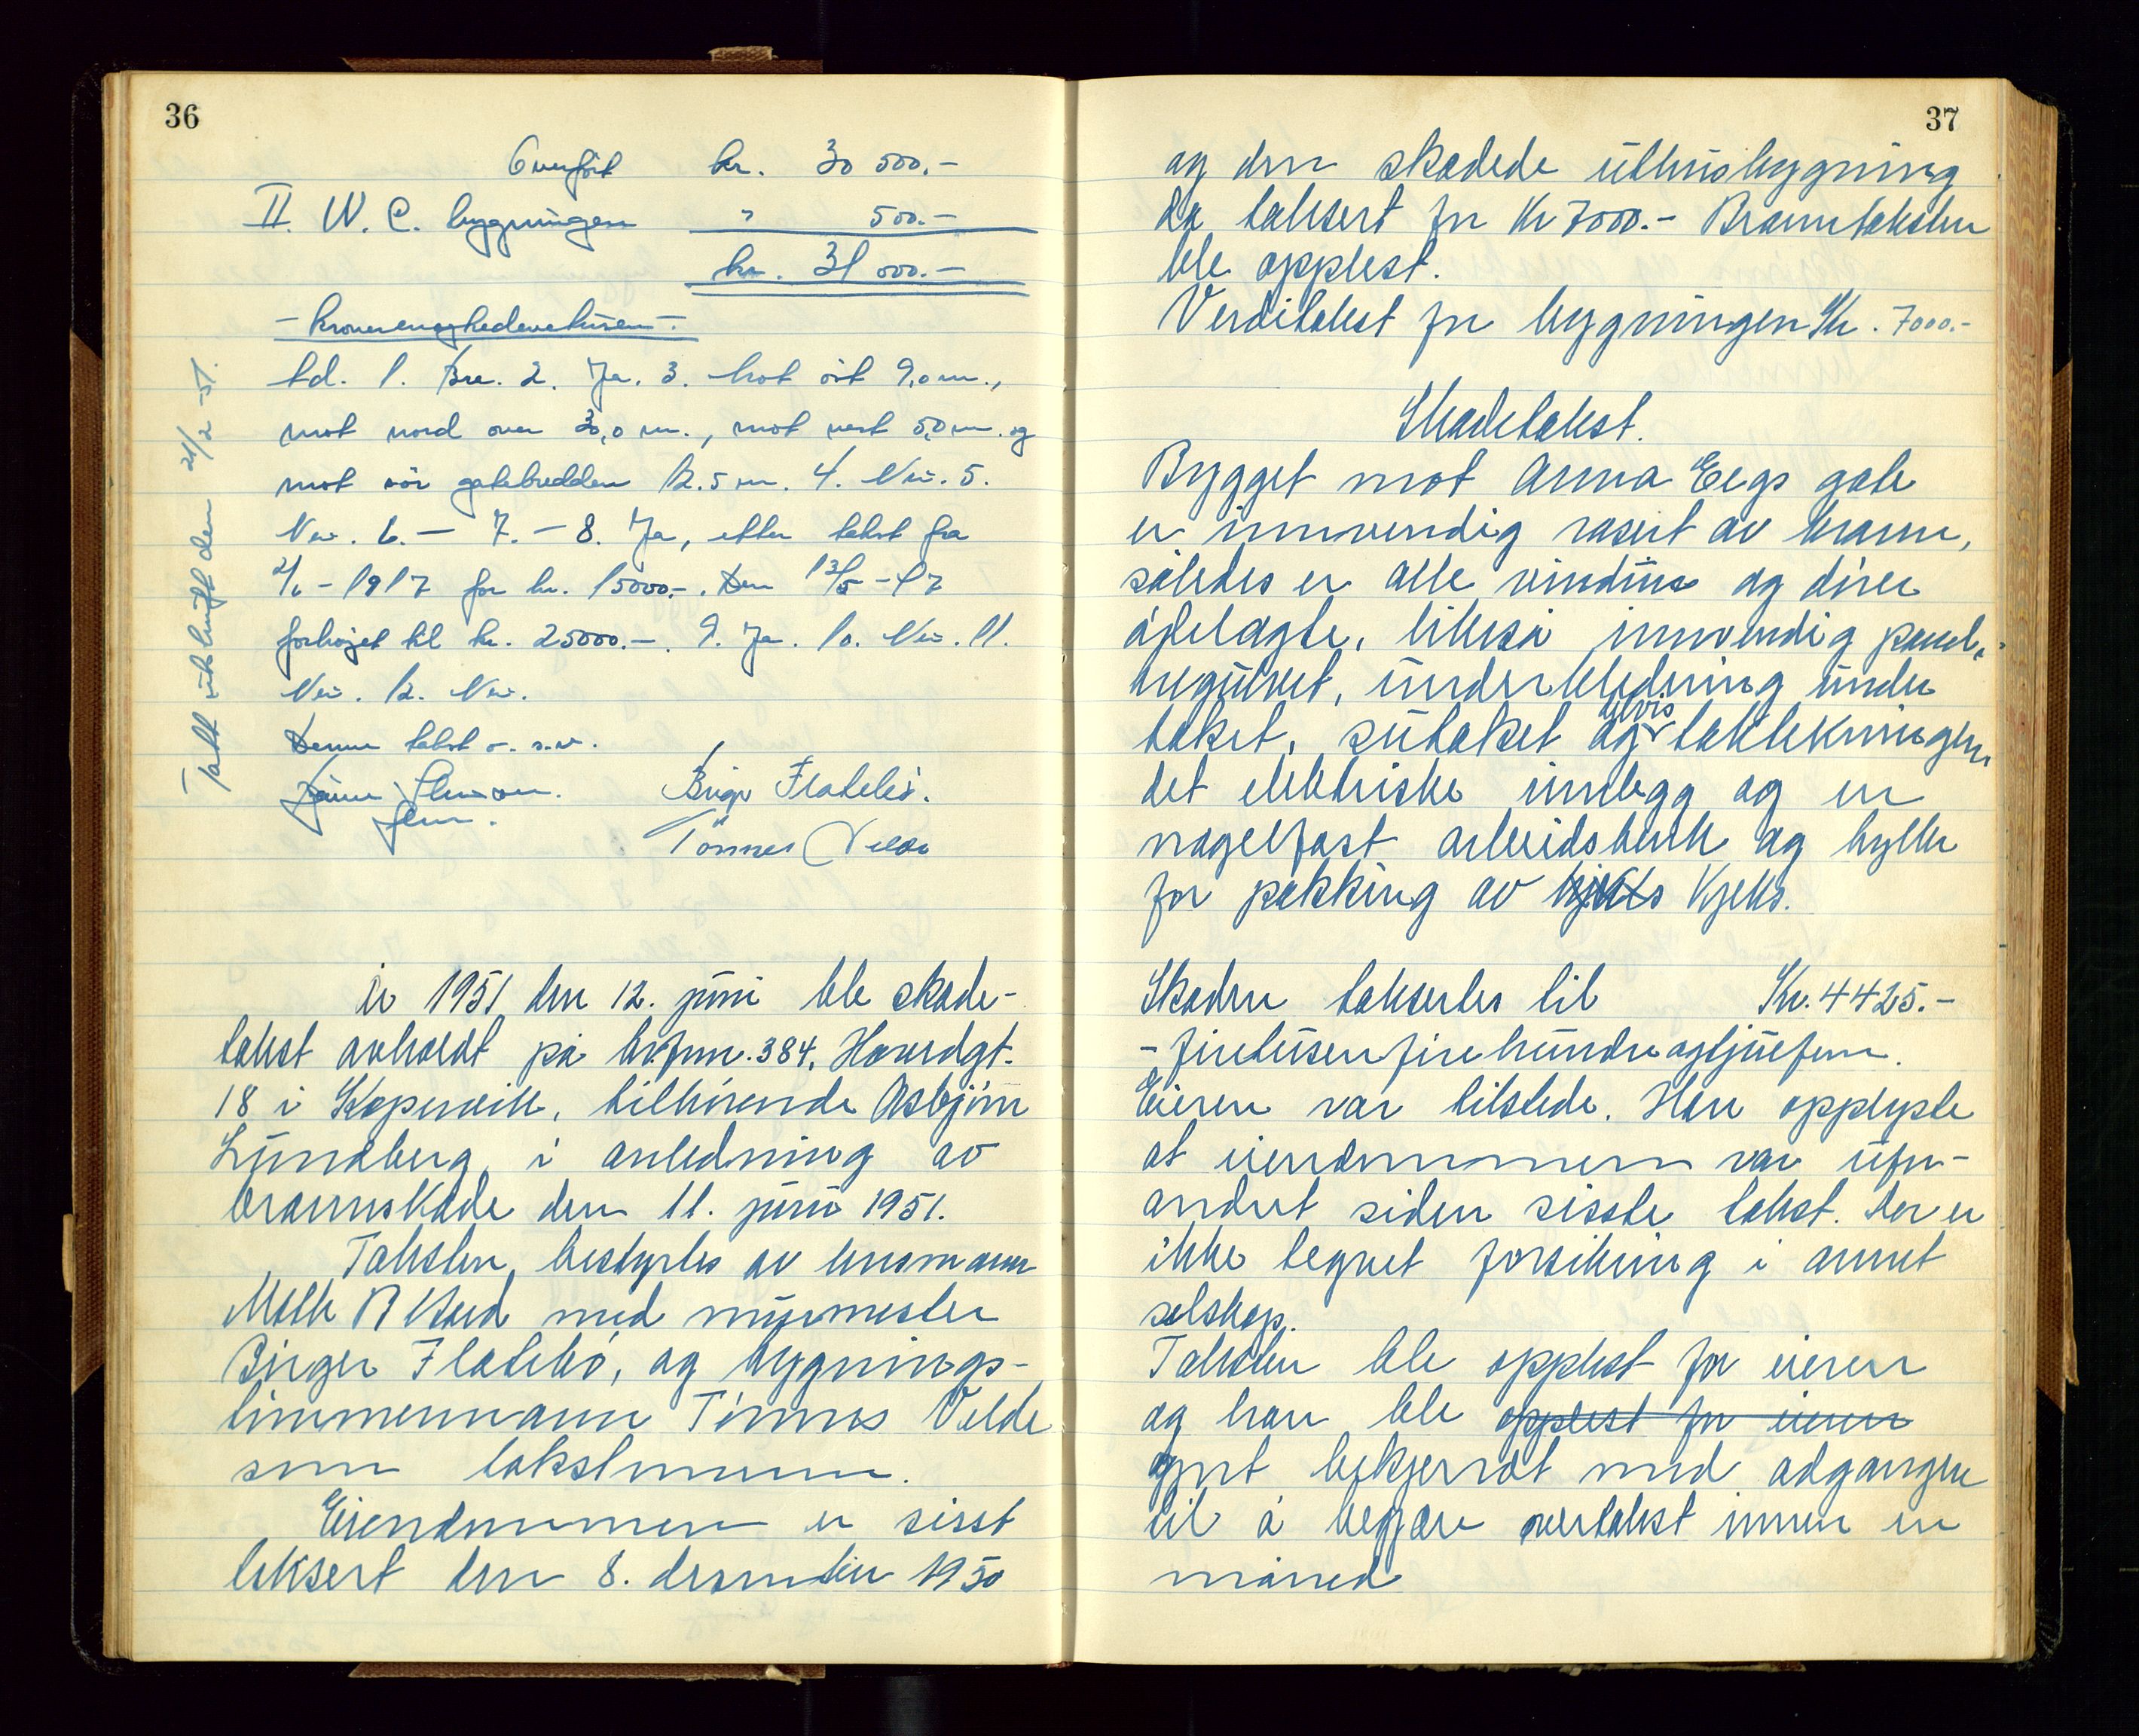 36
Overført kr. 30 500.-
II. W. C. bygningen " 500.-
kr. 31 000.-
- kronerenogtredevetusen -
td. 1. Bra. 2. Ja. 3. Mot öst 9,0 m.,
mot nord over 30,0 m., mot vest 5,0 m. og
mot sör gatebredden 12.5 m. 4. Nei. 5.
Nei. 6. - 7. - 8. Ja, etter takst fra
2/6 - 1917 for kr. 15000.-. Den 13/5 - 17
forhøjet til kr. 25000.-. 9. Ja. 10. Nei. 11.
Nei. 12. Nei.
Denne takst o. s. v.
Birger Flatebö.
Tönnes Velde
Tatt utskrift den 21/2 -51.
År 1951 den 12. juni ble skade-
takst avholdt på br.fnr. 384, Hovedgt.
18 i Kopervik, tilhörende Asbjörn
Lundberg, i anledning av
brannskade den 11. juni 1951.
Taksten bestyrtes av lensmann
med murmester
Birger Flatebö, og bygnings-
timmermann Tönnes Velde
som takstmenn.
Eiendommen er sisst
taksert den 8. desember 1950
37
og den skadede uthusbygning
da taksert for Kr 7000.- Branntaksten
ble opplest.
Verditakst for bygningen Kr. 7000.-
Skadetakst.
Bygget mot Anna Eegs gate
er innvendig rasert av brann,
således er alle vinduer og dörer
ödelagte, likeså innvendig panel,
tregulvet, underkledning under
taket, sutaket og delvis taktekningen,
det elektriske innlegg og en
nagelfast arbeidsbenk og hylle
for pakking av kjeks Kjeks.
Skaden takseres til Kr. 4425.-
- firetusenfirehundreogtjuefem.
Eieren var tilstede. Han opplyste
at eiendommen var ufor-
andret siden sisste takst. Der er
ikke tegnet forsikring i annet
selskap.
Taksten ble opplest for eieren
og han ble opplest for eieren
gjort bekjendt med adgangen
til å begjære overtakst innen en
måned